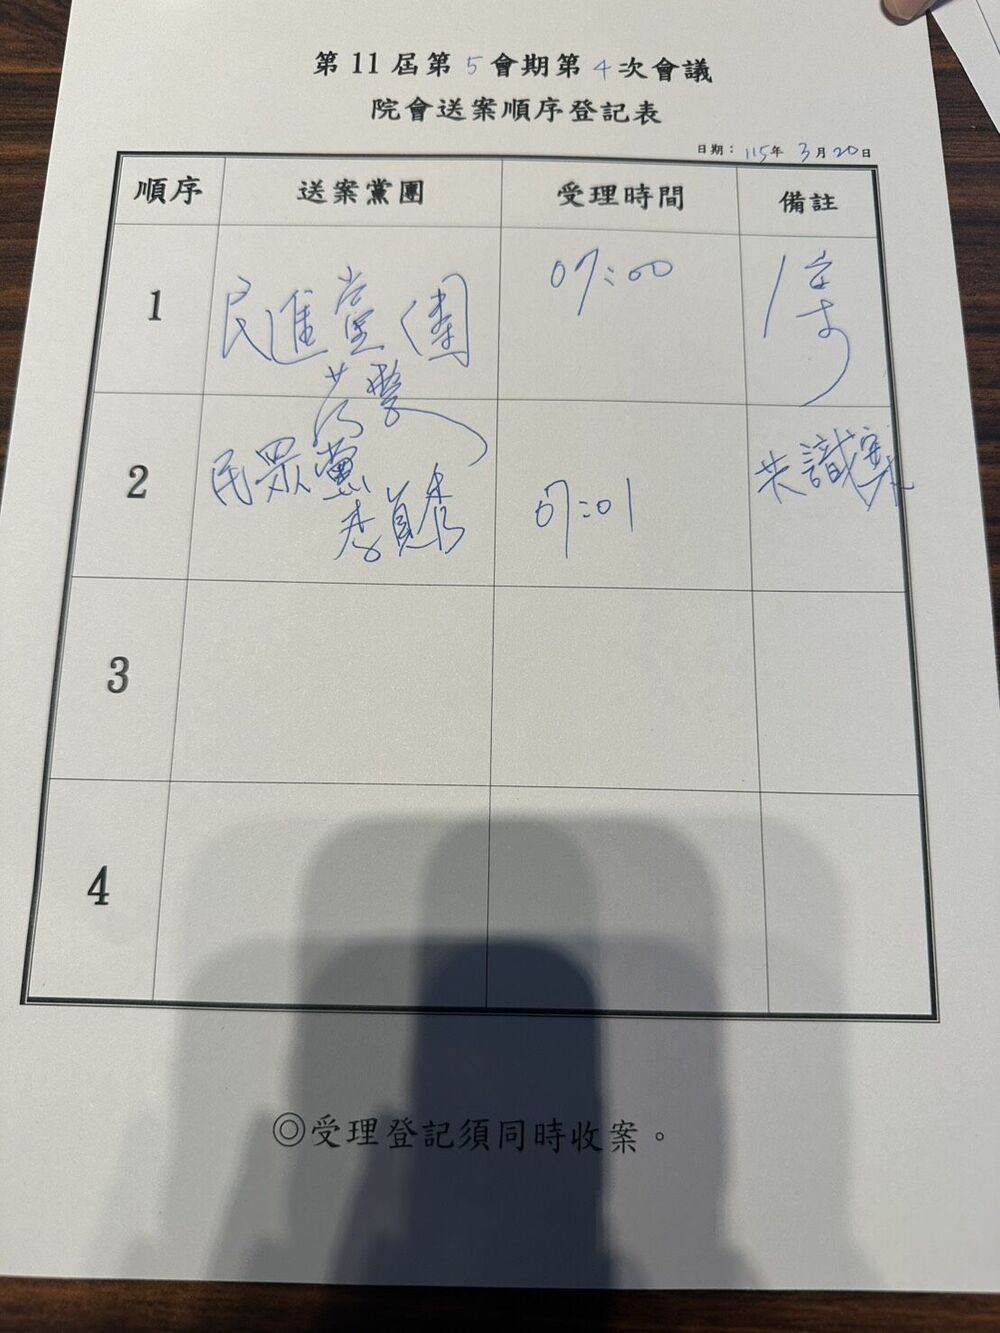 第11屆第5會期第4次會議
院會送案順序登記表
日期：115年3月20日
順序 送案黨團 受理時間 備註
1 民進黨團 07:00 1案
2 民眾黨 李貞秀 07:01 共識案
3
4
◎受理登記須同時收案。